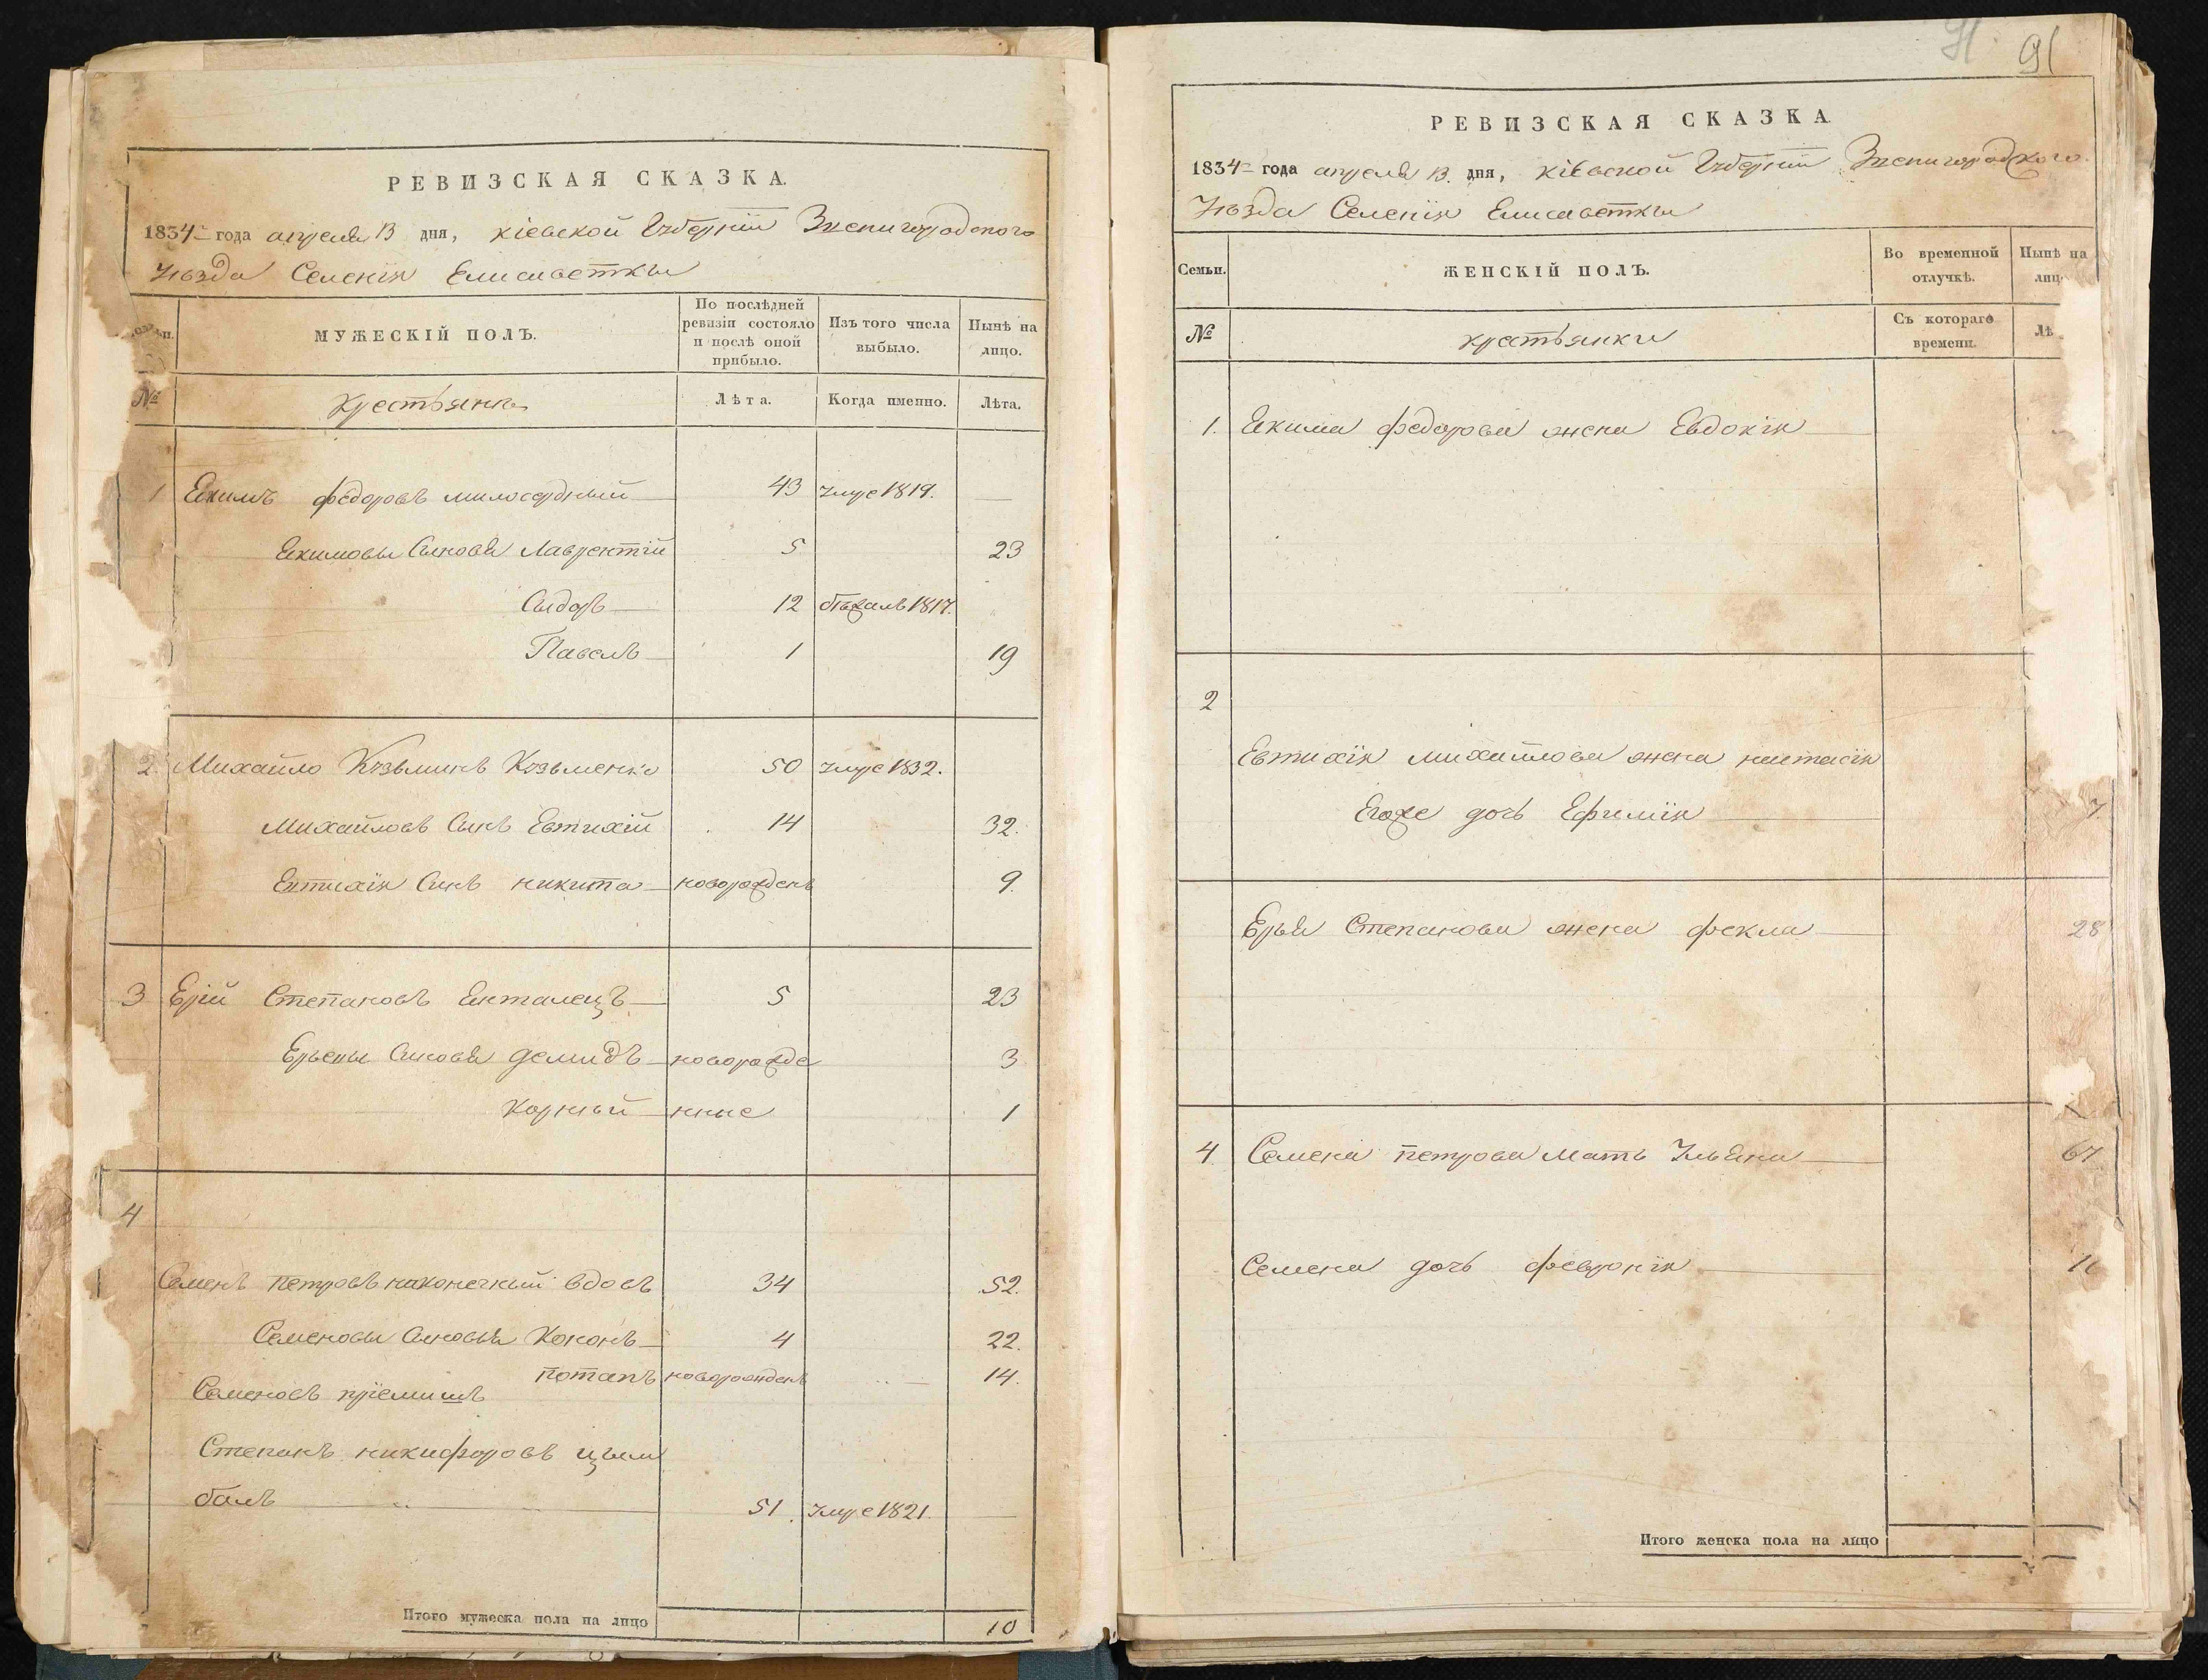 РЕВИЗСКАЯ СКАЗКА.
1834 года апреля 13 дня, кіевской Губерніи Звенигородского
Уѣзда Селенія Елисаветки
МУЖЕСКІЙ ПОЛЪ.
По послѣдней ревизіи состояло и послѣ оной прибыло.
Изъ того числа выбыло.
Нынѣ на лицо.
№
крестьяне
Лѣта.
Когда именно.
Лѣта.
1 Екимъ федоровъ милосердный 43 умре 1819.
Екимовы Сыновья Лаврентій 5 23
Сидоръ 12 бѣжалъ 1817.
Павелъ 1 19
2. Михайло Кузьминъ Кузьменко 50 умре 1832.
Михайловъ Сынъ Евтихій 14 32.
Евтихія Сынъ никита новорожденъ 9.
3 Ерій Степановъ 5 23
Сыновья демидъ новорожде 3
корный нные 1
4
Семенъ петровъ наконечный вдовъ 34 52.
Семеновы Сыновья Кононъ 4 22.
потапъ новорожденъ 14.
Семеновъ пріемишъ
Степанъ никифоровъ цым
балъ 51. умре 1821.
Итого мужеска пола на лицо 10
91
РЕВИЗСКАЯ СКАЗКА
1834 года апреля 13. дня, кіевской Губерніи Звенигородского
Уѣзда Селенія Елисаветки
Семьи.
ЖЕНСКІЙ ПОЛЪ.
Во временной отлучкѣ.
Нынѣ на лиц
№
крестьянки
Съ котораго времени.
Лѣ
1. Екима федорова жена Евдокія
2
Евтихія михайлова жена настасія
Егоже дочь Ефимія 7.
Степанова жена фекла 28
4 Семена петрова Мать Ульяна 67
Семена дочь февронія
Итого женска пола на лицо